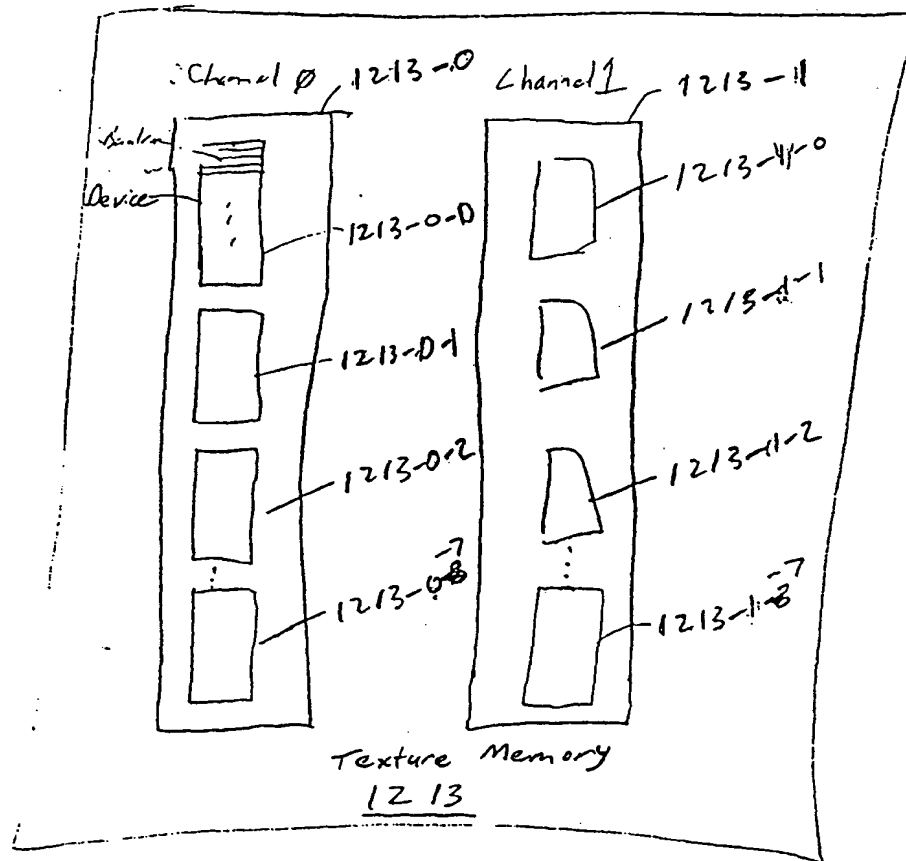 Channel 0 1213-0
Channel 1 1213-1
Device
1213-0-0
1213-0-1
1213-0-2
1213-0-7
1213-1-0
1213-1-1
1213-1-2
1213-1-7
Texture Memory
1213